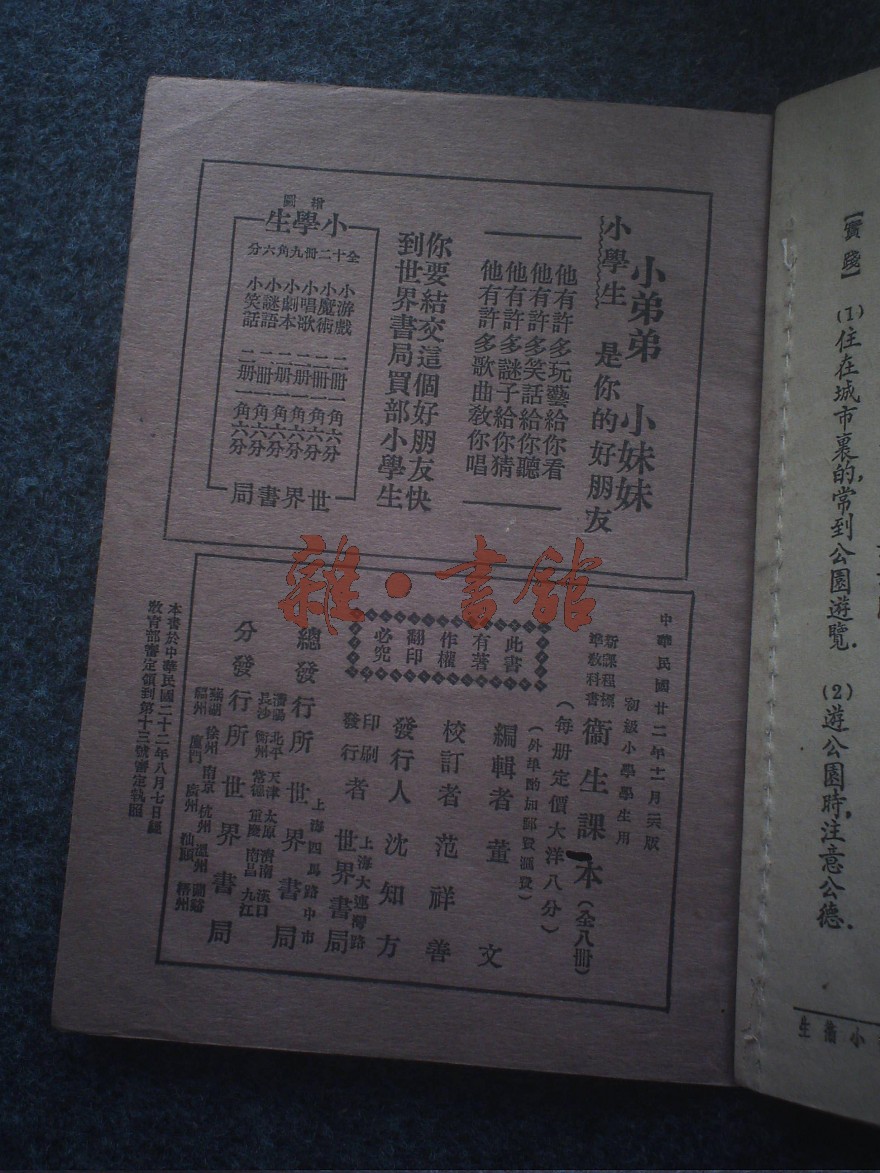 小弟弟 小妹妹
小學生 是你的好朋友
他有許多玩藝給你看
他有許多笑話給你聽
他有許多謎子給你猜
他有許多歌曲敎你唱
你要結交這個好朋友快
到世界書局買部小學生
繪圖
小學生
全十二冊九角六分
小游戲 二冊 一角六分
小魔術 二冊 一角六分
小唱歌 二冊 一角六分
小劇本 二冊 一角六分
小謎語 二冊 一角六分
小笑話 二冊 一角六分
世界書局
雜·書館
中華民國廿二年十二月三六版
新課程標
準敎科書
初級小學學生用
衞生課本(全八冊)
(每册定價大洋八分)
(外埠酌加郵費滙費)
此書
有著
作權
翻印
必究
編輯者 董文
校訂者 范祥善
發行人 沈知方
印刷
發行者
上海大連灣路
世界書局
總發行所
上海四馬路中市
世界書局
瀋陽 北平 天津 太原 濟南 漢口
長沙 衡州 常德 重慶 南昌 九江
分發行所 世界書局
蕪湖 徐州 南京 杭州 溫州 蘭谿
福州 廈門 廣州 汕頭 梧州
本書於中華民國二十二年八月七日經
敎育部審定領到第十三號審定執照
【實踐】 (1)住在城市裏的,常到公園遊覽. (2)遊公園時,注意公德.
小衞生